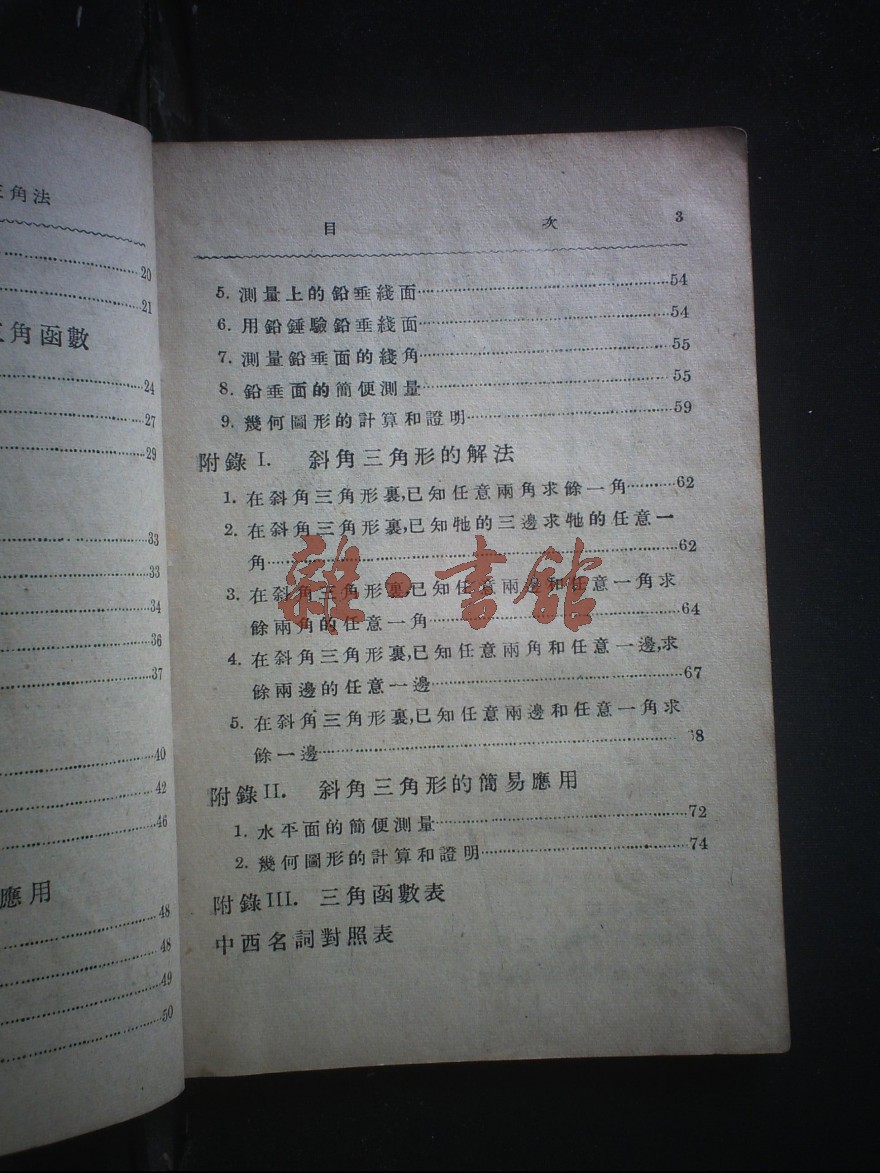 三角法
20
21
角函數
24
27
29
33
33
34
36
37
40
42
46
應用
48
48
49
50
目 次 3
5. 測量上的鉛垂綫面……54
6. 用鉛錘驗鉛垂綫面……54
7. 測量鉛垂面的綫角……55
8. 鉛垂面的簡便測量……55
9. 幾何圖形的計算和證明……59
附錄 I. 斜角三角形的解法
1. 在斜角三角形裏,已知任意兩角求餘一角……62
2. 在斜角三角形裏,已知牠的三邊求牠的任意一
角……62
3. 在斜角三角形裏,已知任意兩邊和任意一角求
餘兩角的任意一角……64
4. 在斜角三角形裏,已知任意兩角和任意一邊,求
餘兩邊的任意一邊……67
5. 在斜角三角形裏,已知任意兩邊和任意一角求
餘一邊……68
附錄 II. 斜角三角形的簡易應用
1. 水平面的簡便測量……72
2. 幾何圖形的計算和證明……74
附錄 III. 三角函數表
中西名詞對照表
雜·書館